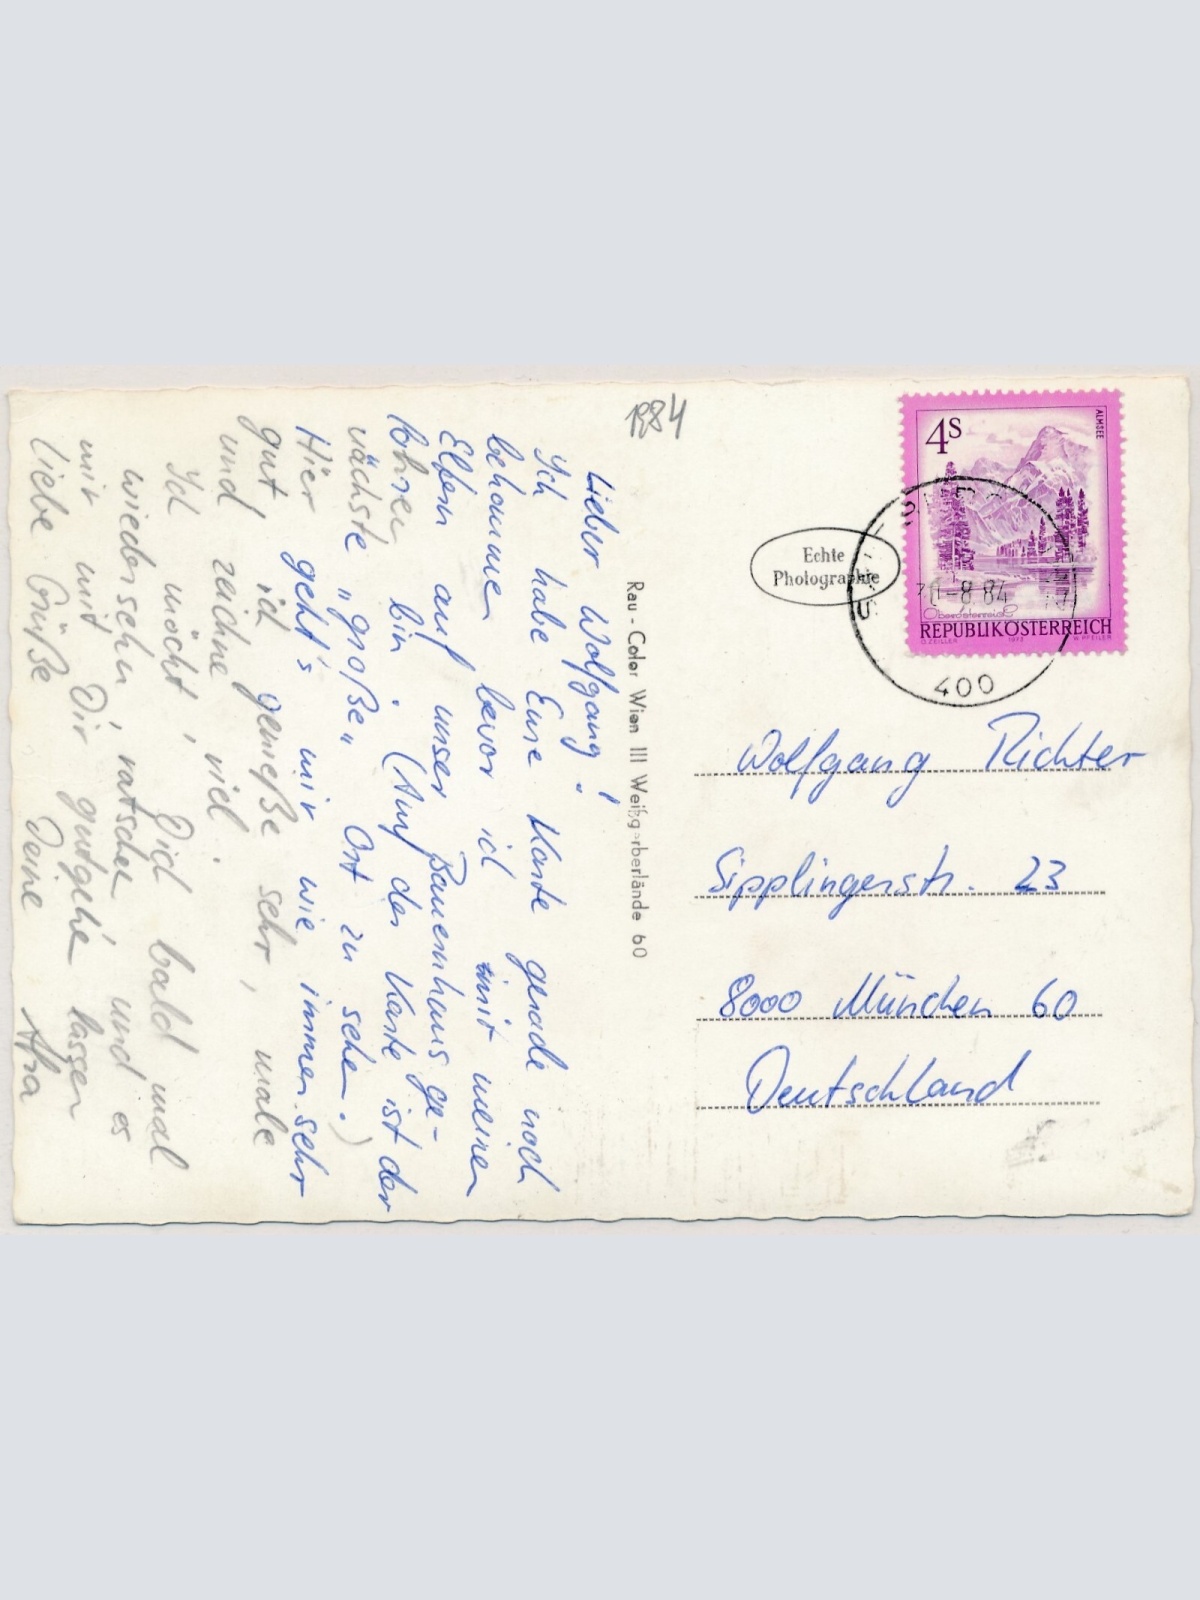 Lieber Wolfgang!
Ich habe Eure Karte gerade noch
bekommen bevor ich mit meinen
Eltern auf unser Bauernhaus ge-
fahren bin. (Auf der Karte ist der
nächste „große" Ort zu sehen.)
Hier geht's mir wie immer sehr
gut, ich genieße sehr, male
und zeichne viel.
Ich möcht' Dich bald mal
wiedersehn, ratschen und es
mir mit Dir gutgehn lassen
Liebe Grüße Deine
1984
Rau - Color Wien III Weißgerberlände 60
Echte
Photographie
4S
ALMSEE
Oberösterreich
REPUBLIK ÖSTERREICH
O.ZEILLER 1973 W.PFEILER
-8.84
400
Wolfgang Richter
Sipplingerstr. 23
8000 München 60
Deutschland